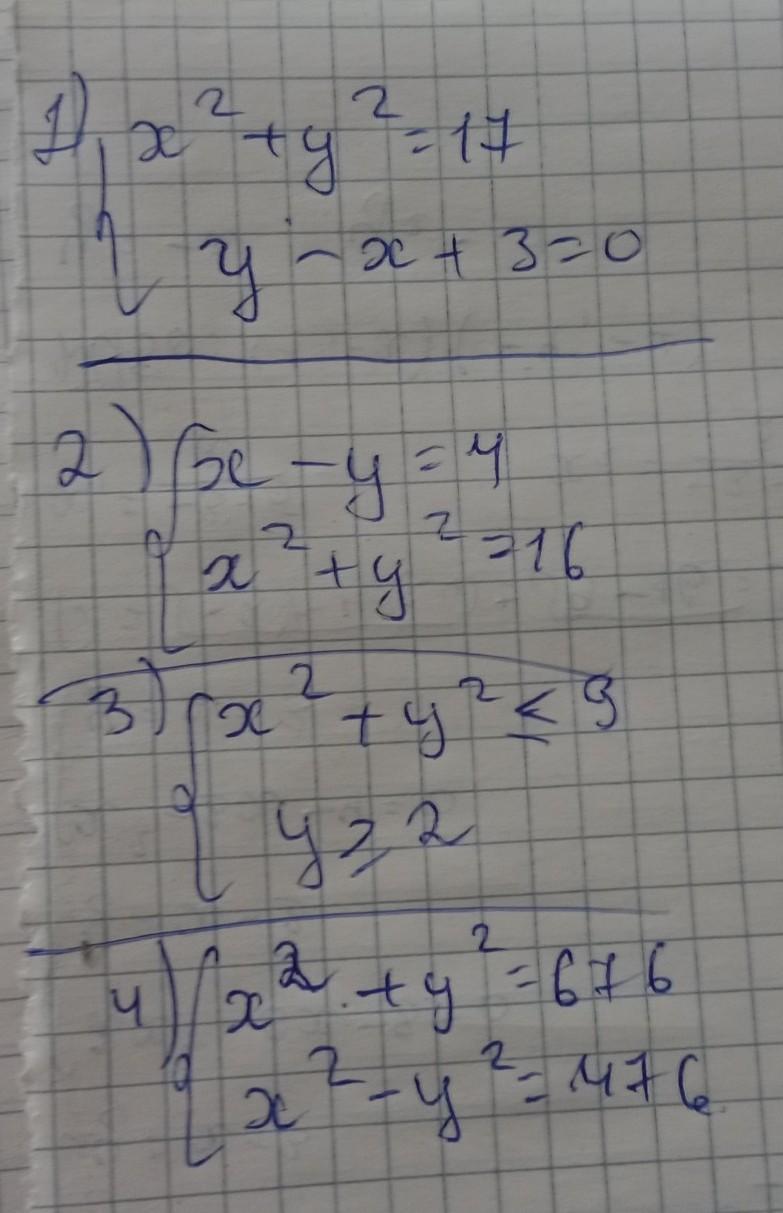 1) x² + y² = 17
y - x + 3 = 0
2) x - y = 4
x² + y² = 16
3) x² + y² ≤ 9
y ≥ 2
4) x² + y² = 676
x² - y² = 476